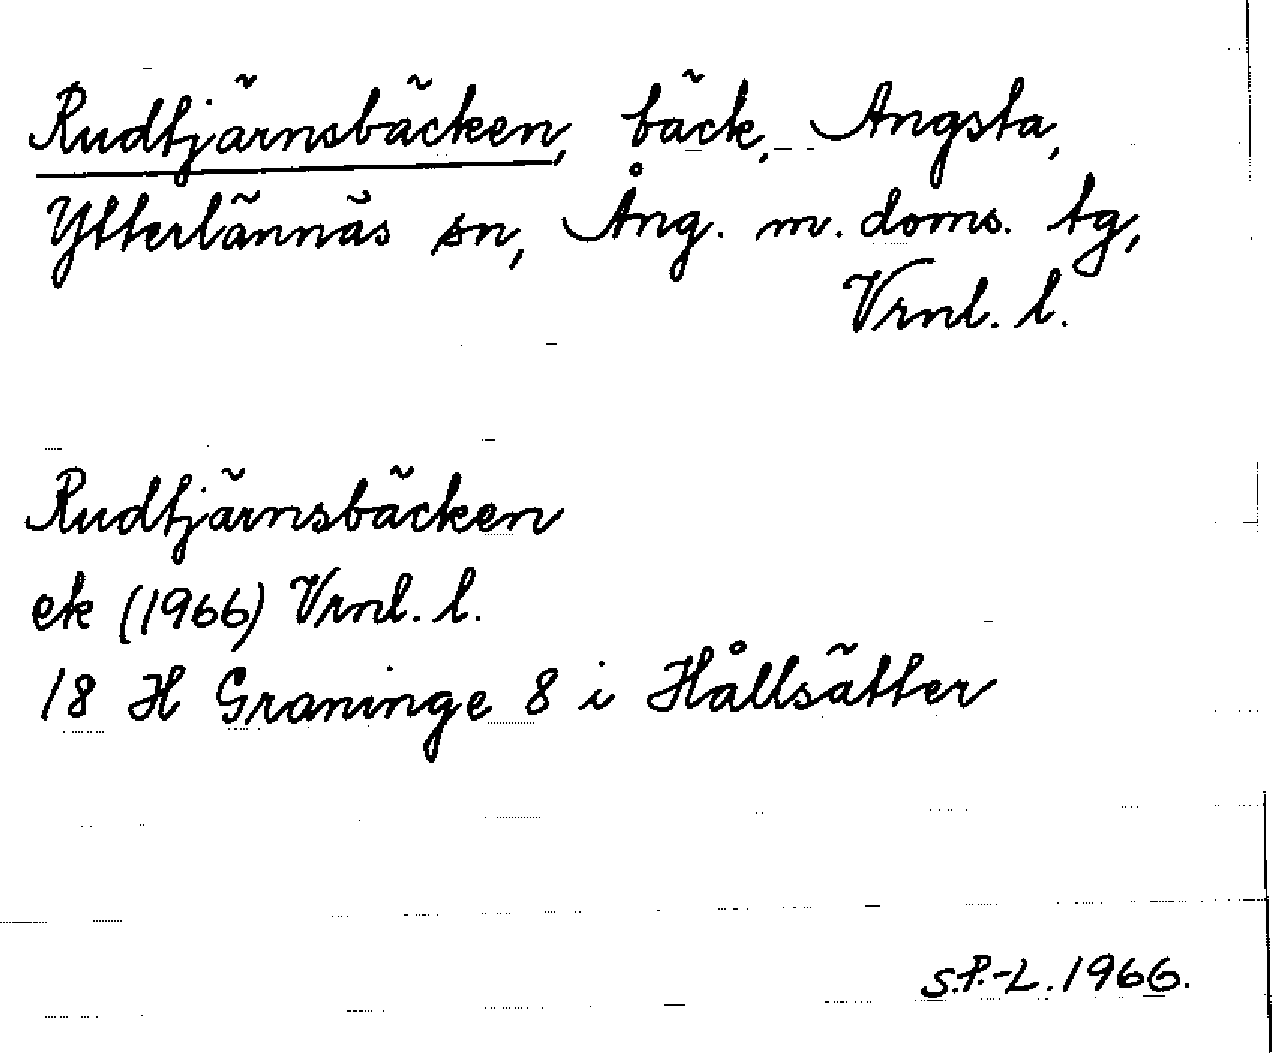 Rudtjärnsbäcken, bäck, Angsta,
Ytterlännäs sn, Ång. m. doms. tg,
Vrnl. l.
Rudtjärnsbäcken
ek (1966) Vrnl. l.
18 H Graninge 8 i Hållsätter
S.P.-L. 1966.